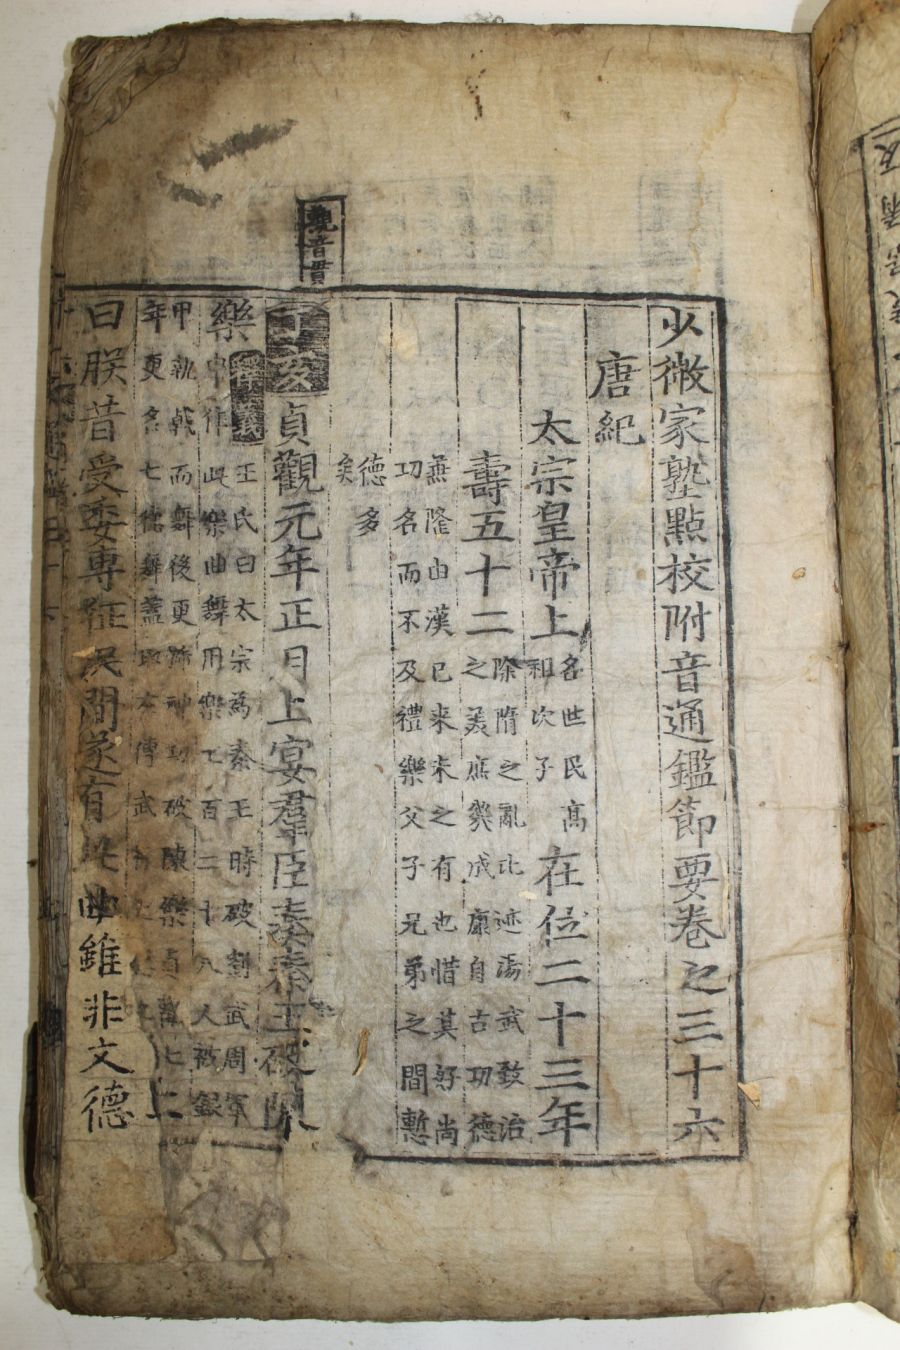 少微家塾點校附音通鑑節要卷之三十六
唐紀
太宗皇帝上
名世民高
和次子
在位二十三年
壽五十二
除隋之亂比迹湯武致治
之美庶幾成康自古功德
兼隆由漢已來未之有也惜其好尚
功名而不及禮樂父子兄弟之間慙
德多
矣
丁亥
貞觀元年正月上宴羣臣奏秦王破陳
觀音貫
樂
釋義
王氏曰太宗為秦王時破劉武周軍
中作此樂曲舞用樂工百二十八人被銀
甲執戟而舞後更
神功破陳樂
年更名七德舞蓋取本傳武
上
曰朕昔受委專征民間遂有此曲雖非文德